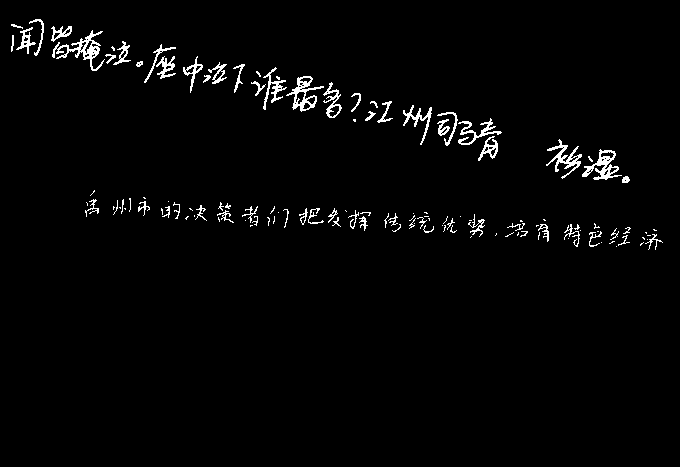 闻皆掩泣。座中泣下谁最多?江州司马青衫湿。
禹州市的决策者们把发挥传统优势,培育特色经济